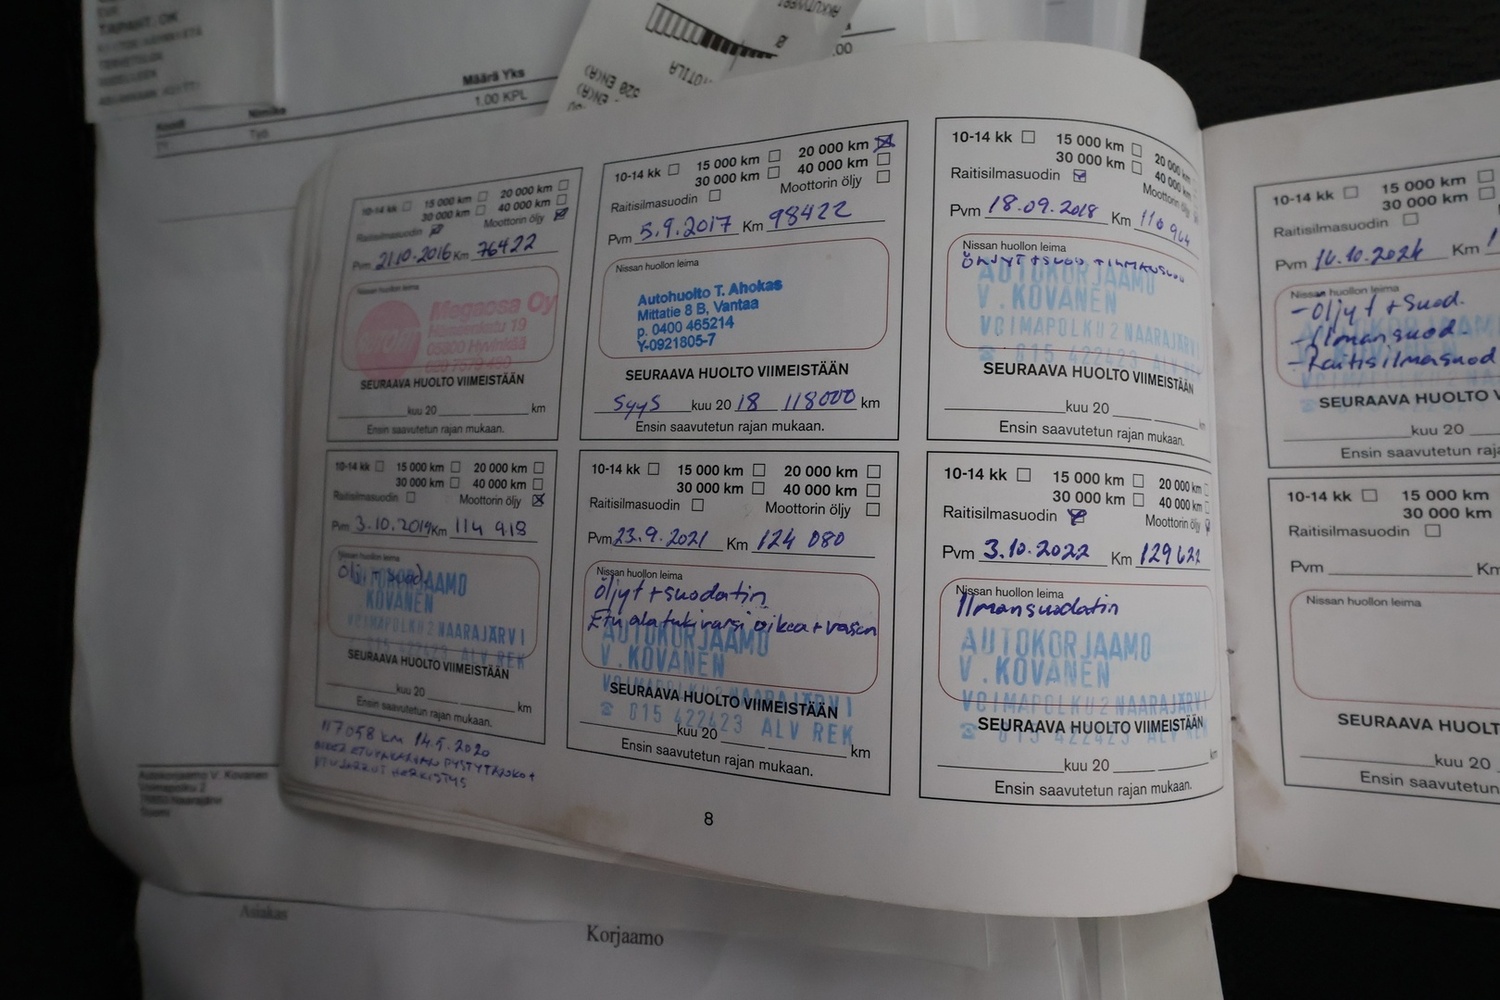 TAPAHT. OK
Määrä Yks
1.00 KPL
Nimike
Työ
10-14 kk 15 000 km 20 000 km
30 000 km 40 000 km
Raitisilmasuodin Moottorin öljy
Pvm 21.10.2016 Km 76422
Nissan huollon leima
Megaosa Oy
Hämeenkatu 19
05800 Hyvinkää
SEURAAVA HUOLTO VIIMEISTÄÄN
kuu 20 km
Ensin saavutetun rajan mukaan.
10-14 kk 15 000 km 20 000 km
30 000 km 40 000 km
Raitisilmasuodin Moottorin öljy
Pvm 5.9.2017 Km 98422
Nissan huollon leima
Autohuolto T. Ahokas
Mittatie 8 B, Vantaa
p. 0400 465214
Y-0921805-7
SEURAAVA HUOLTO VIIMEISTÄÄN
Syys kuu 20 18 118000 km
Ensin saavutetun rajan mukaan.
10-14 kk 15 000 km 20 000
30 000 km 40 000
Raitisilmasuodin Moottorin öljy
Pvm 18.09.2018 Km 110 964
Nissan huollon leima
ÖLJYT + SUOD + ILMANSUOD
AUTOKORJAAMO
V. KOVANEN
VOIMAPOLKU 2 NAARAJÄRVI
☎ 015 422423 ALV
SEURAAVA HUOLTO VIIMEISTÄÄN
kuu 20 km
Ensin saavutetun rajan mukaan.
10-14 kk 15 000 km 20 000 km
30 000 km 40 000 km
Raitisilmasuodin Moottorin öljy
Pvm 3.10.2019 Km 114 918
Nissan huollon leima
Öljy + suod
AUTOKORJAAMO
KOVANEN
VOIMAPOLKU 2 NAARAJÄRVI
015 422423 ALV REK
SEURAAVA HUOLTO VIIMEISTÄÄN
kuu 20 km
Ensin saavutetun rajan mukaan.
117058 km 14.5.2020
10-14 kk 15 000 km 20 000 km
30 000 km 40 000 km
Raitisilmasuodin Moottorin öljy
Pvm 23.9.2021 Km 124 080
Nissan huollon leima
Öljyt + suodatin
Etu alatukivarsi oikea + vasen
AUTOKORJAAMO
V. KOVANEN
VOIMAPOLKU 2 NAARAJÄRVI
SEURAAVA HUOLTO VIIMEISTÄÄN
☎ 015 422423 ALV REK
kuu 20 km
Ensin saavutetun rajan mukaan.
10-14 kk 15 000 km 20 000
30 000 km 40 000 km
Raitisilmasuodin Moottorin öljy
Pvm 3.10.2022 Km 129622
Nissan huollon leima
Ilmansuodatin
AUTOKORJAAMO
V. KOVANEN
VOIMAPOLKU 2 NAARAJÄRVI
SEURAAVA HUOLTO VIIMEISTÄÄN
☎ 015 422423 ALV REK
kuu 20 km
Ensin saavutetun rajan mukaan.
8
10-14 kk 15 000 km
30 000 km
Raitisilmasuodin
Pvm 16.10.2024 Km
Nissan huollon leima
- Öljyt + Suod.
- Ilmansuod.
- Raitisilmasuod
SEURAAVA HUOLTO
kuu 20
Ensin saavutetun
10-14 kk 15 000 km
30 000 km
Raitisilmasuodin
Pvm Km
Nissan huollon leima
SEURAAVA HUOLT
kuu 20
Ensin saavutetun
Autokorjaamo V. Kovanen
Voimapolku 2
Naarajärvi
Suomi
Asiakas
Korjaamo